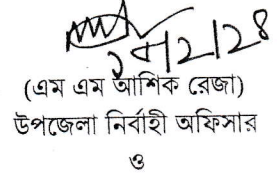 (এম এম আশিক রেজা)
উপজেলা নির্বাহী অফিসার
ও